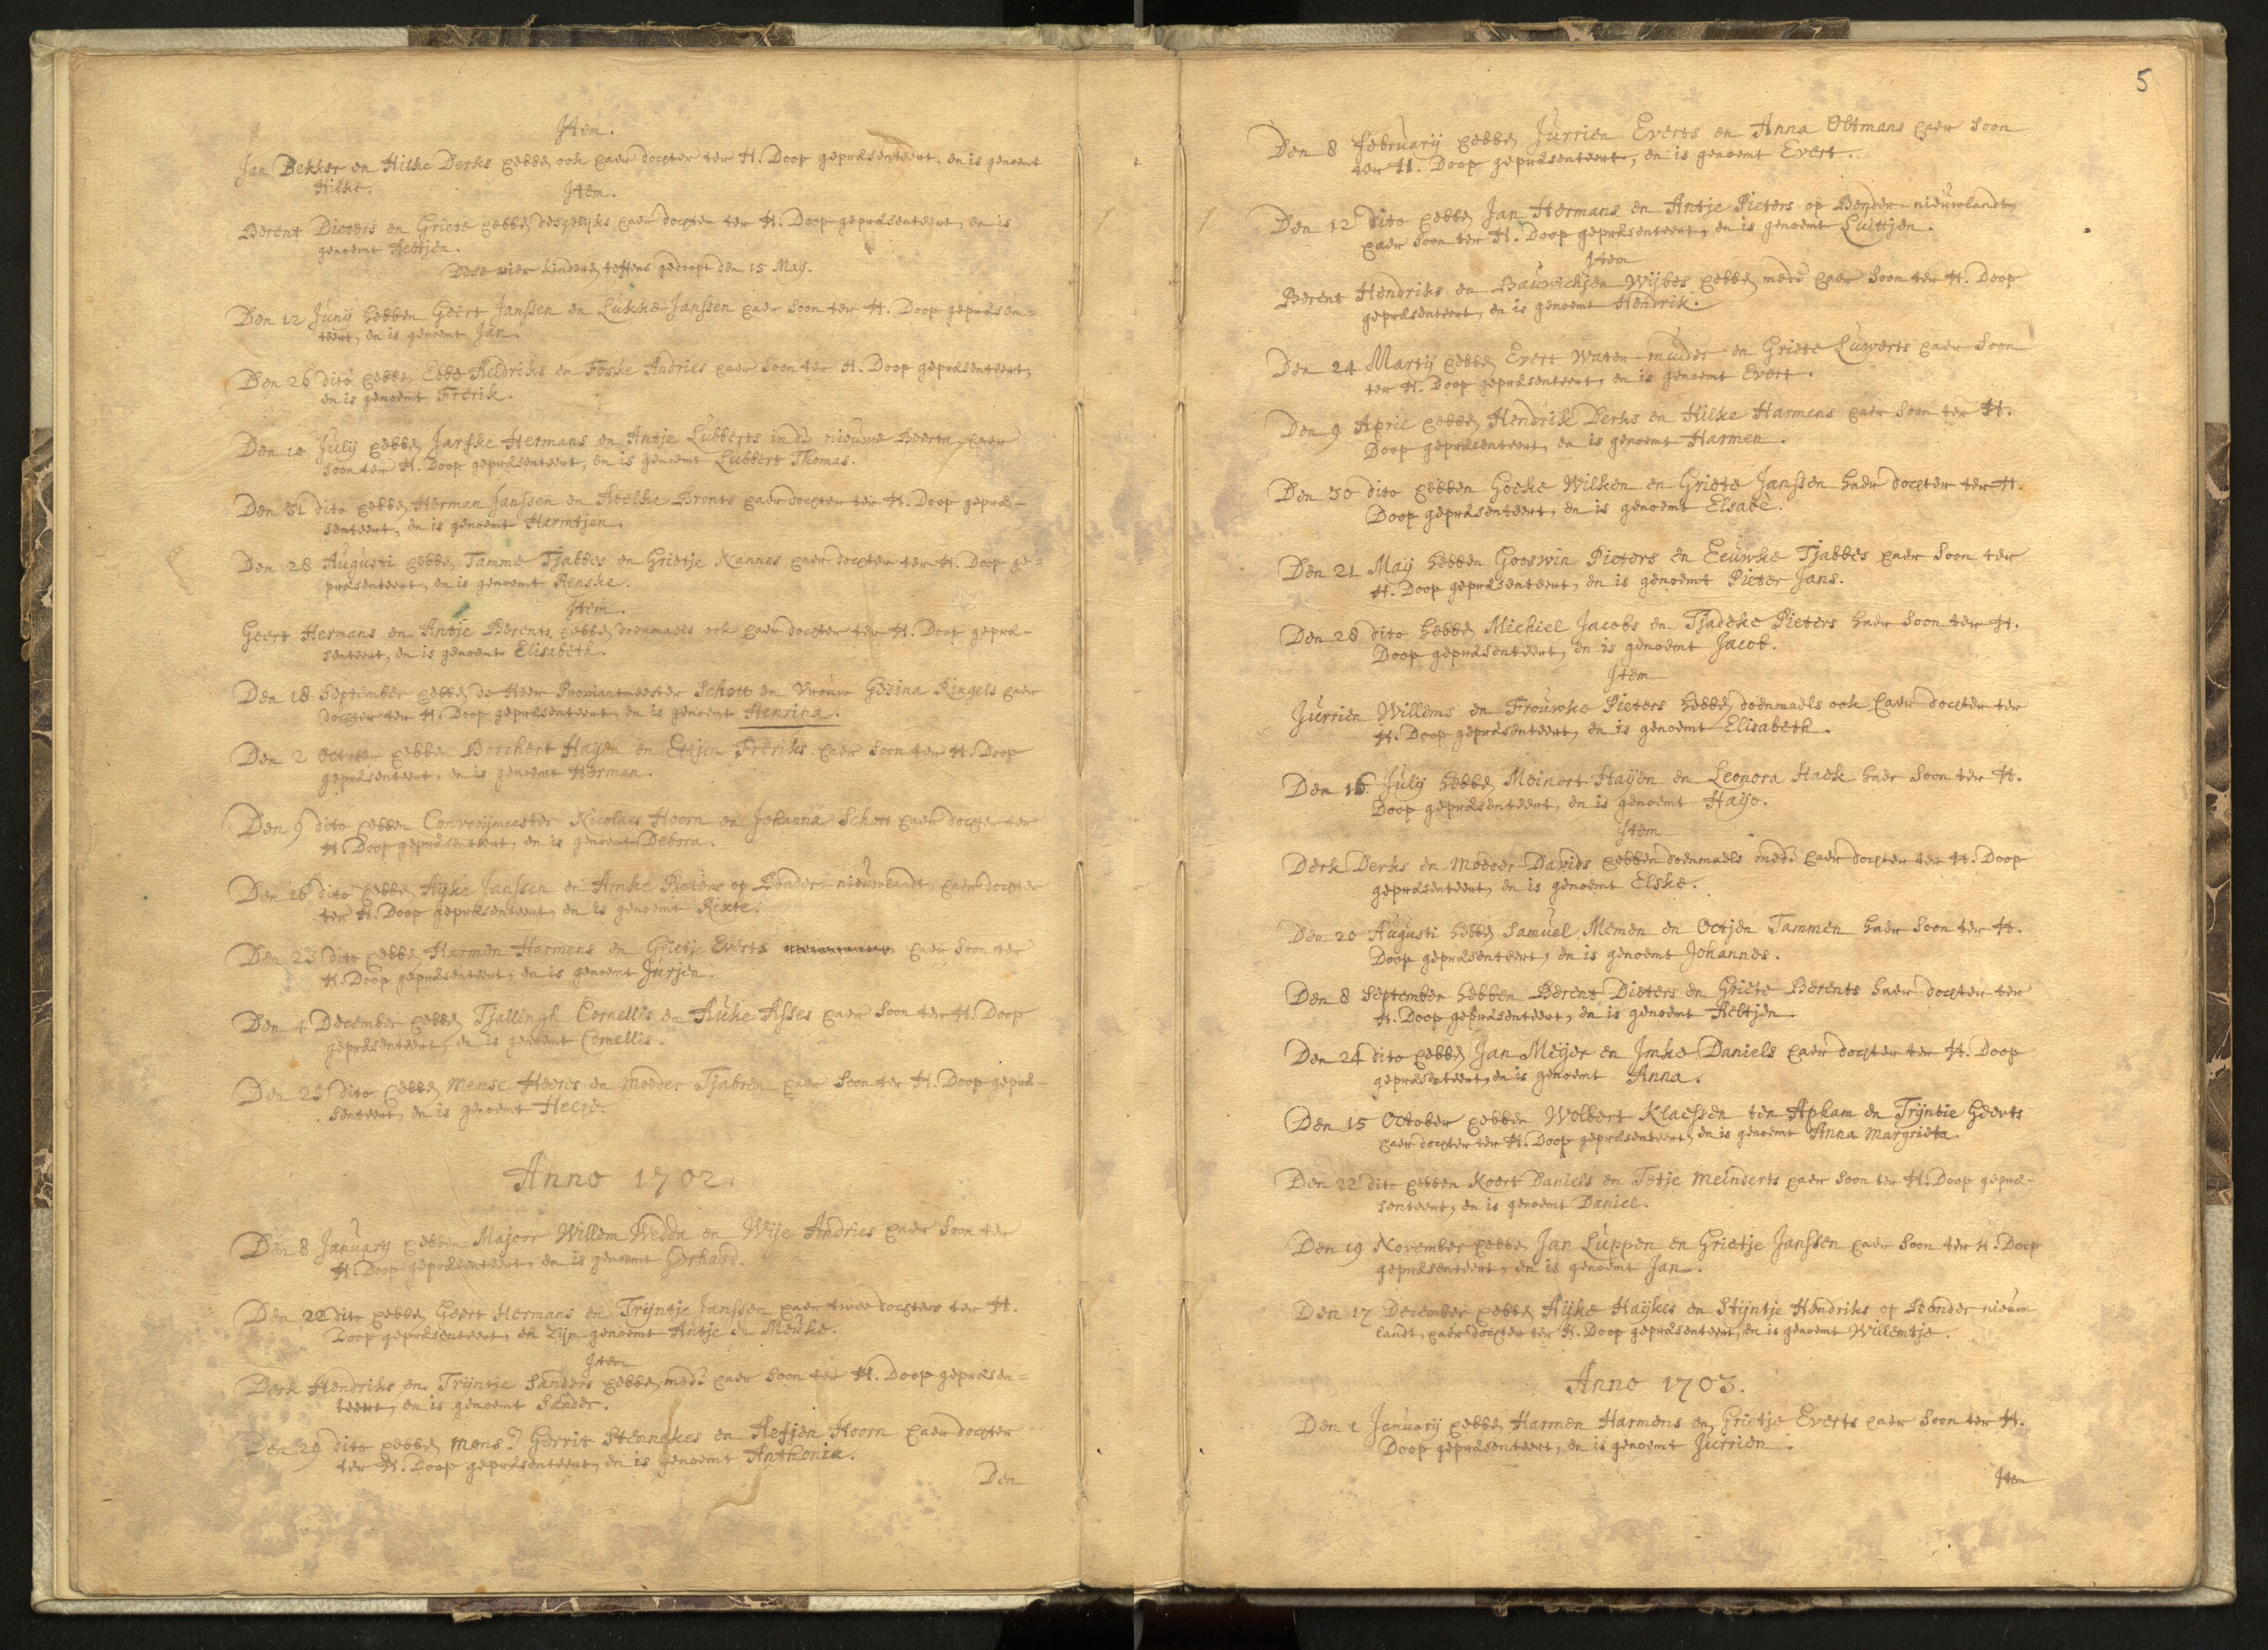 Item.
Jan Bekker en Hilke Derks hebben ook haer dochter ter H. Doop gepræsenteert, en is genoemt
Hilke.
Item.
Berent Dieters en Griete hebben desgelijks haer dochter ter H. Doop gepræsenteert, en is
genoemt Aeltjen.
Dese vier kinderen teffens gedoopt den 15 Maij.
Den 12 Junij hebben Geert Janssen en Lukke Janssen haer soon ter H. Doop gepræsen=
teert, en is genoemt Jan.
Den 26 dito hebben Ebbe Aeldriks en Foske Andries haer soon ter H. Doop gepræsenteert,
en is genoemt Frerik.
Den 10 Julij hebben Jarske Hermans en Antje Lubberts in de nieuwe Beerta, haer
soon ter H. Doop gepræsenteert, en is genoemt Lubbert Thomas.
Den 31 dito hebben Herman Janssen en Aelke Brents haer dochter ter H. Doop gepræ-
senteert, en is genoemt Harmtjen.
Den 28 Augusti hebben Tamme Tjabbes en Grietje Nannes haer dochter ter H. Doop ge=
præsenteert, en is genoemt Renske.
Item.
Geert Hermans en Antje Berents hebben doenmaels ook haer dochter ter H. Doop gepræ-
senteert, en is genoemt Elisabeth.
Den 18 September hebben de Heer Proviantmeester Schott en Vrouw Gesina Ringels haer
dochter ter H. Doop gepræsenteert, en is genoemt Henrina.
Den 2 October hebben Borchert Haijen en Ettjen Freriks haer soon ter H. Doop
gepræsenteert, en is genoemt Herman.
Den 9 dito hebben Convooijmeester Nicolaes Hoorn en Johanna Schott haer dochter ter
H. Doop gepræsenteert, en is genoemt Debora.
Den 16 dito hebben Aijke Janssen en Amke Pieters op Bonder-nieuwlandt, haer dochter
ter H. Doop gepræsenteert, en is genoemt Rixte.
Den 23 dito hebben Harmen Harmens en Grietje Everts haer soon ter
H. Doop gepræsenteert, en is genoemt Jurjen.
Den 4 December hebben Tjallingh Cornellis en Auke Asses haer soon ter H. Doop
gepræsenteert, en is genoemt Cornellis.
Den 25 dito hebben Mense Heeres en Moeder Tjabren haer soon ter H. Doop gepræ-
senteert, en is genoemt Heere.
Anno 1702.
Den 8 January hebben Majoor Willem Wedda en Wije Andries haer soon ter
H. Doop gepræsenteert, en is genoemt Gerhard.
Den 22 dito hebben Geert Hermans en Trijntje Janssen haer twee dochters ter H.
Doop gepræsenteert, en zijn genoemt Antje en Meuke.
Item
Derk Hendriks en Trijntje Sanders hebben mede haer soon ter H. Doop gepræsen=
teert, en is genoemt Sander.
Den 29 dito hebben Mons.r Gerrit Stennekes en Aefjen Hoorn haer dochter
ter H. Doop gepræsenteert, en is genoemt Anthonia.
Den
5
Den 8 February hebben Jurrien Everts en Anna Oltmans haer soon
ter H. Doop gepræsenteert, en is genoemt Evert.
Den 12 dito hebben Jan Hermans en Antje Pieters op Bonder-nieuwlandt,
haer soon ter H. Doop gepræsenteert, en is genoemt Luittjen.
Item
Berent Hendriks en Bauwichjen Wijbes hebben mede haer soon ter H. Doop
gepræsenteert, en is genoemt Hendrik.
Den 24 Martij hebben Evert Water-mulder en Griete Luwerts haer soon
ter H. Doop gepræsenteert, en is genoemt Evert.
Den 9 April hebben Hendrik Derks en Hilke Harmens haer soon ter H.
Doop gepræsenteert, en is genoemt Harmen.
Den 30 dito hebben Goeke Wilken en Griete Janssen haer dochter ter H.
Doop gepræsenteert, en is genoemt Elsabe.
Den 21 Maij hebben Gooswin Pieters en Eeuwke Tjabbes haer soon ter
H. Doop gepræsenteert, en is genoemt Pieter Jans.
Den 28 dito hebben Michiel Jacobs en Tjadeke Pieters haer soon ter H.
Doop gepræsenteert, en is genoemt Jacob.
Item
Jurrien Willems en Frouwke Pieters hebben doenmaels ook haer dochter ter
H. Doop gepræsenteert, en is genoemt Elisabeth.
Den 16 Julij hebben Meinert Haijen en Leonora Haek haer soon ter H.
Doop gepræsenteert, en is genoemt Haijo.
Item
Derk Derks en Moeder Davids hebben doenmaels mede haer dochter ter H. Doop
gepræsenteert, en is genoemt Elske.
Den 20 Augusti hebben Samuel Memen en Octjen Tammen haer soon ter H.
Doop gepræsenteert, en is genoemt Johannes.
Den 8 September hebben Berent Dieters en Griete Berents haer dochter ter
H. Doop gepræsenteert, en is genoemt Aeltjen.
Den 24 dito hebben Jan Meijer en Imke Daniels haer dochter ter H. Doop
gepræsenteert, en is genoemt Anna.
Den 15 October hebben Wolbert Klaessen ten Apkam en Trijntie Geerts
haer dochter ter H. Doop gepræsenteert, en is genoemt Anna Margrieta.
Den 22 dito hebben Koert Daniels en Tetje Meinderts haer soon ter H. Doop gepræ-
senteert, en is genoemt Daniel.
Den 19 November hebben Jan Luppen en Grietje Janssen haer soon ter H. Doop
gepræsenteert, en is genoemt Jan.
Den 17 December hebben Aijke Haijkes en Stijntje Hendriks op Bonder nieuw
landt, haer dochter ter H. Doop gepræsenteert, en is genoemt Willemtje.
Anno 1703.
Den 1 January hebben Harmen Harmens en Grietje Everts haer soon ter H.
Doop gepræsenteert, en is genoemt Jurrien.
Item